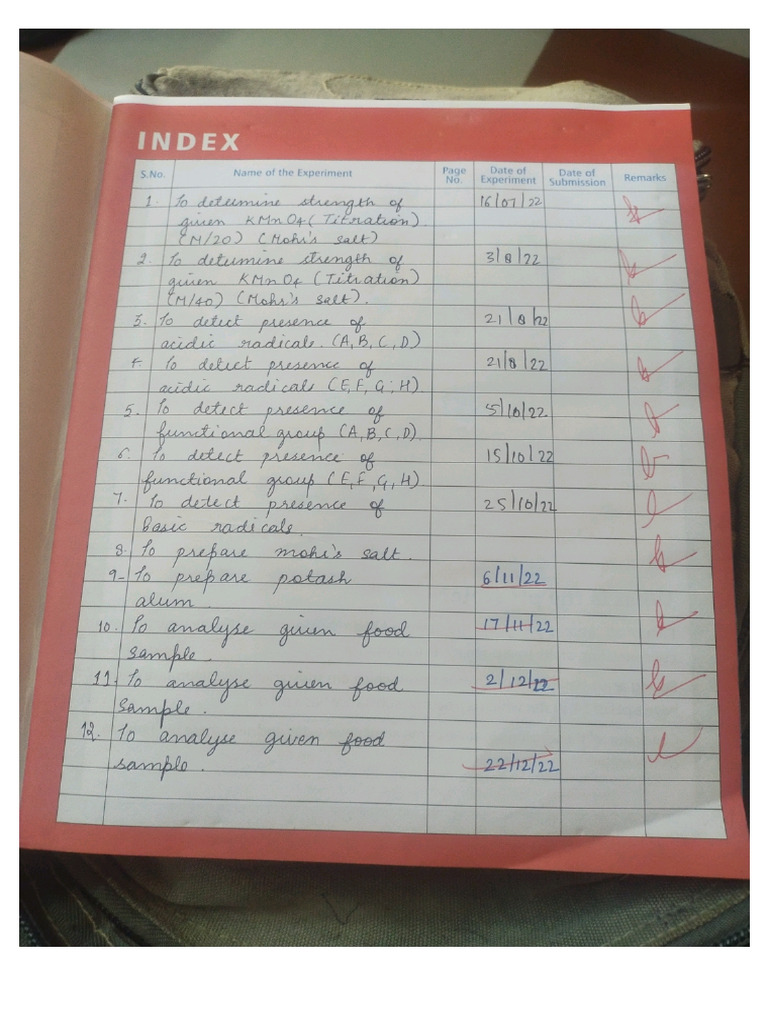 INDEX
S.No. Name of the Experiment Page No. Date of Experiment Date of Submission Remarks
1. To determine strength of 16/07/22
given KMnO4 (Titration)
(M/20) (Mohr's salt)
2. To determine strength of 3/8/22
given KMnO4 (Titration)
(M/40) (Mohr's salt).
3. To detect presence of 21/8/22
acidic radicals. (A,B,C,D)
4. To detect presence of 21/8/22
acidic radicals (E,F,G,H)
5. To detect presence of 5/10/22
functional group (A,B,C,D).
6. To detect presence of 15/10/22
functional group (E,F,G,H).
7. To detect presence of 25/10/22
basic radicals.
8. To prepare mohr's salt.
9. To prepare potash 6/11/22
alum.
10. To analyse given food 17/11/22
sample.
11. To analyse given food 2/12/22
sample.
12. To analyse given food
sample. 22/12/22